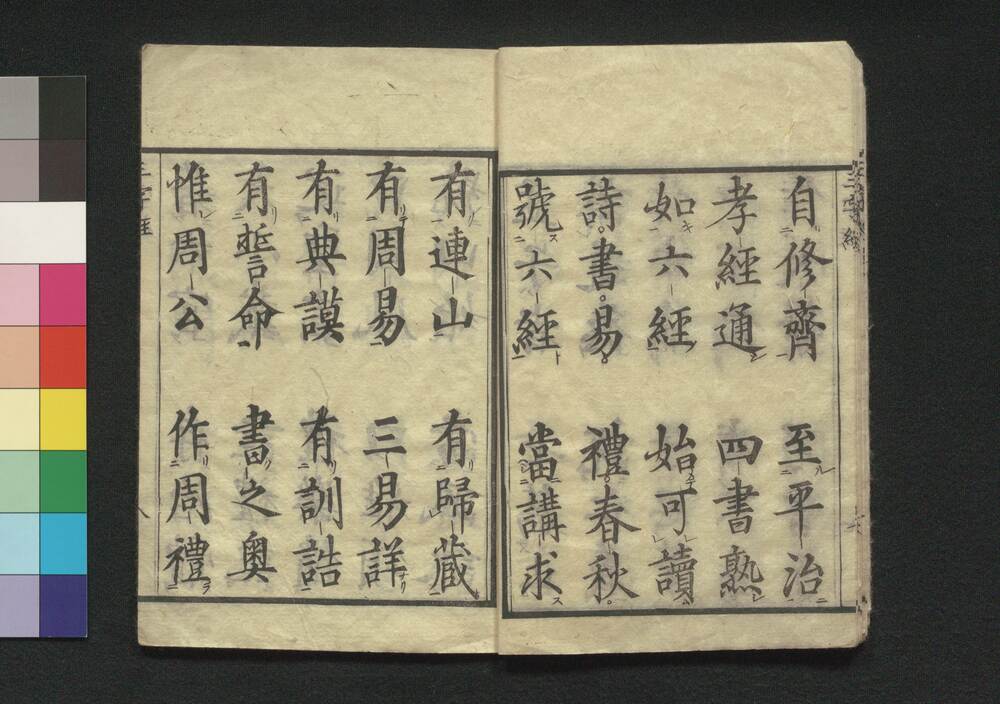 自修齊　至平治
孝經通　四書熟
如六經　始可讀
詩書易　禮春秋
號六經　當講求
有連山　有歸藏
有周易　三易詳
有典謨　有訓誥
有誓命　書之奧
惟周公　作周禮